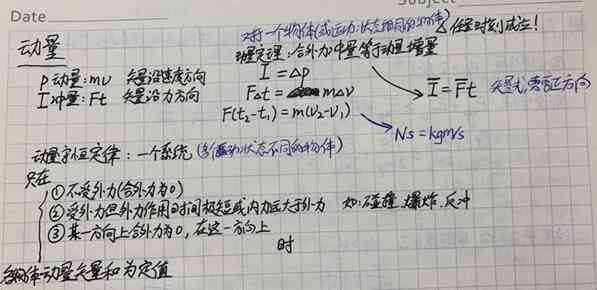 Date
Subject
动量
P 动量：mv 矢量沿速度方向
I 冲量：Ft 矢量沿力方向
对于一个物体(或运动状态相同的物体) 任意时刻成立！
动量定理：合外力冲量等于动量增量
I = Δp
FΔt = mΔv
F(t₂-t₁)=m(v₂-v₁)
I = Ft 矢量式，需规定正方向
Ns = kgm/s
动量守恒定律：一个系统 (多个运动状态不同的物体)
只在
① 不受外力(合外力为0)
② 受外力但外力作用时间极短或内力远大于外力 如：碰撞、爆炸、反冲
③ 某一方向上合外力为0，在这一方向上
时
各物体动量矢量和为定值